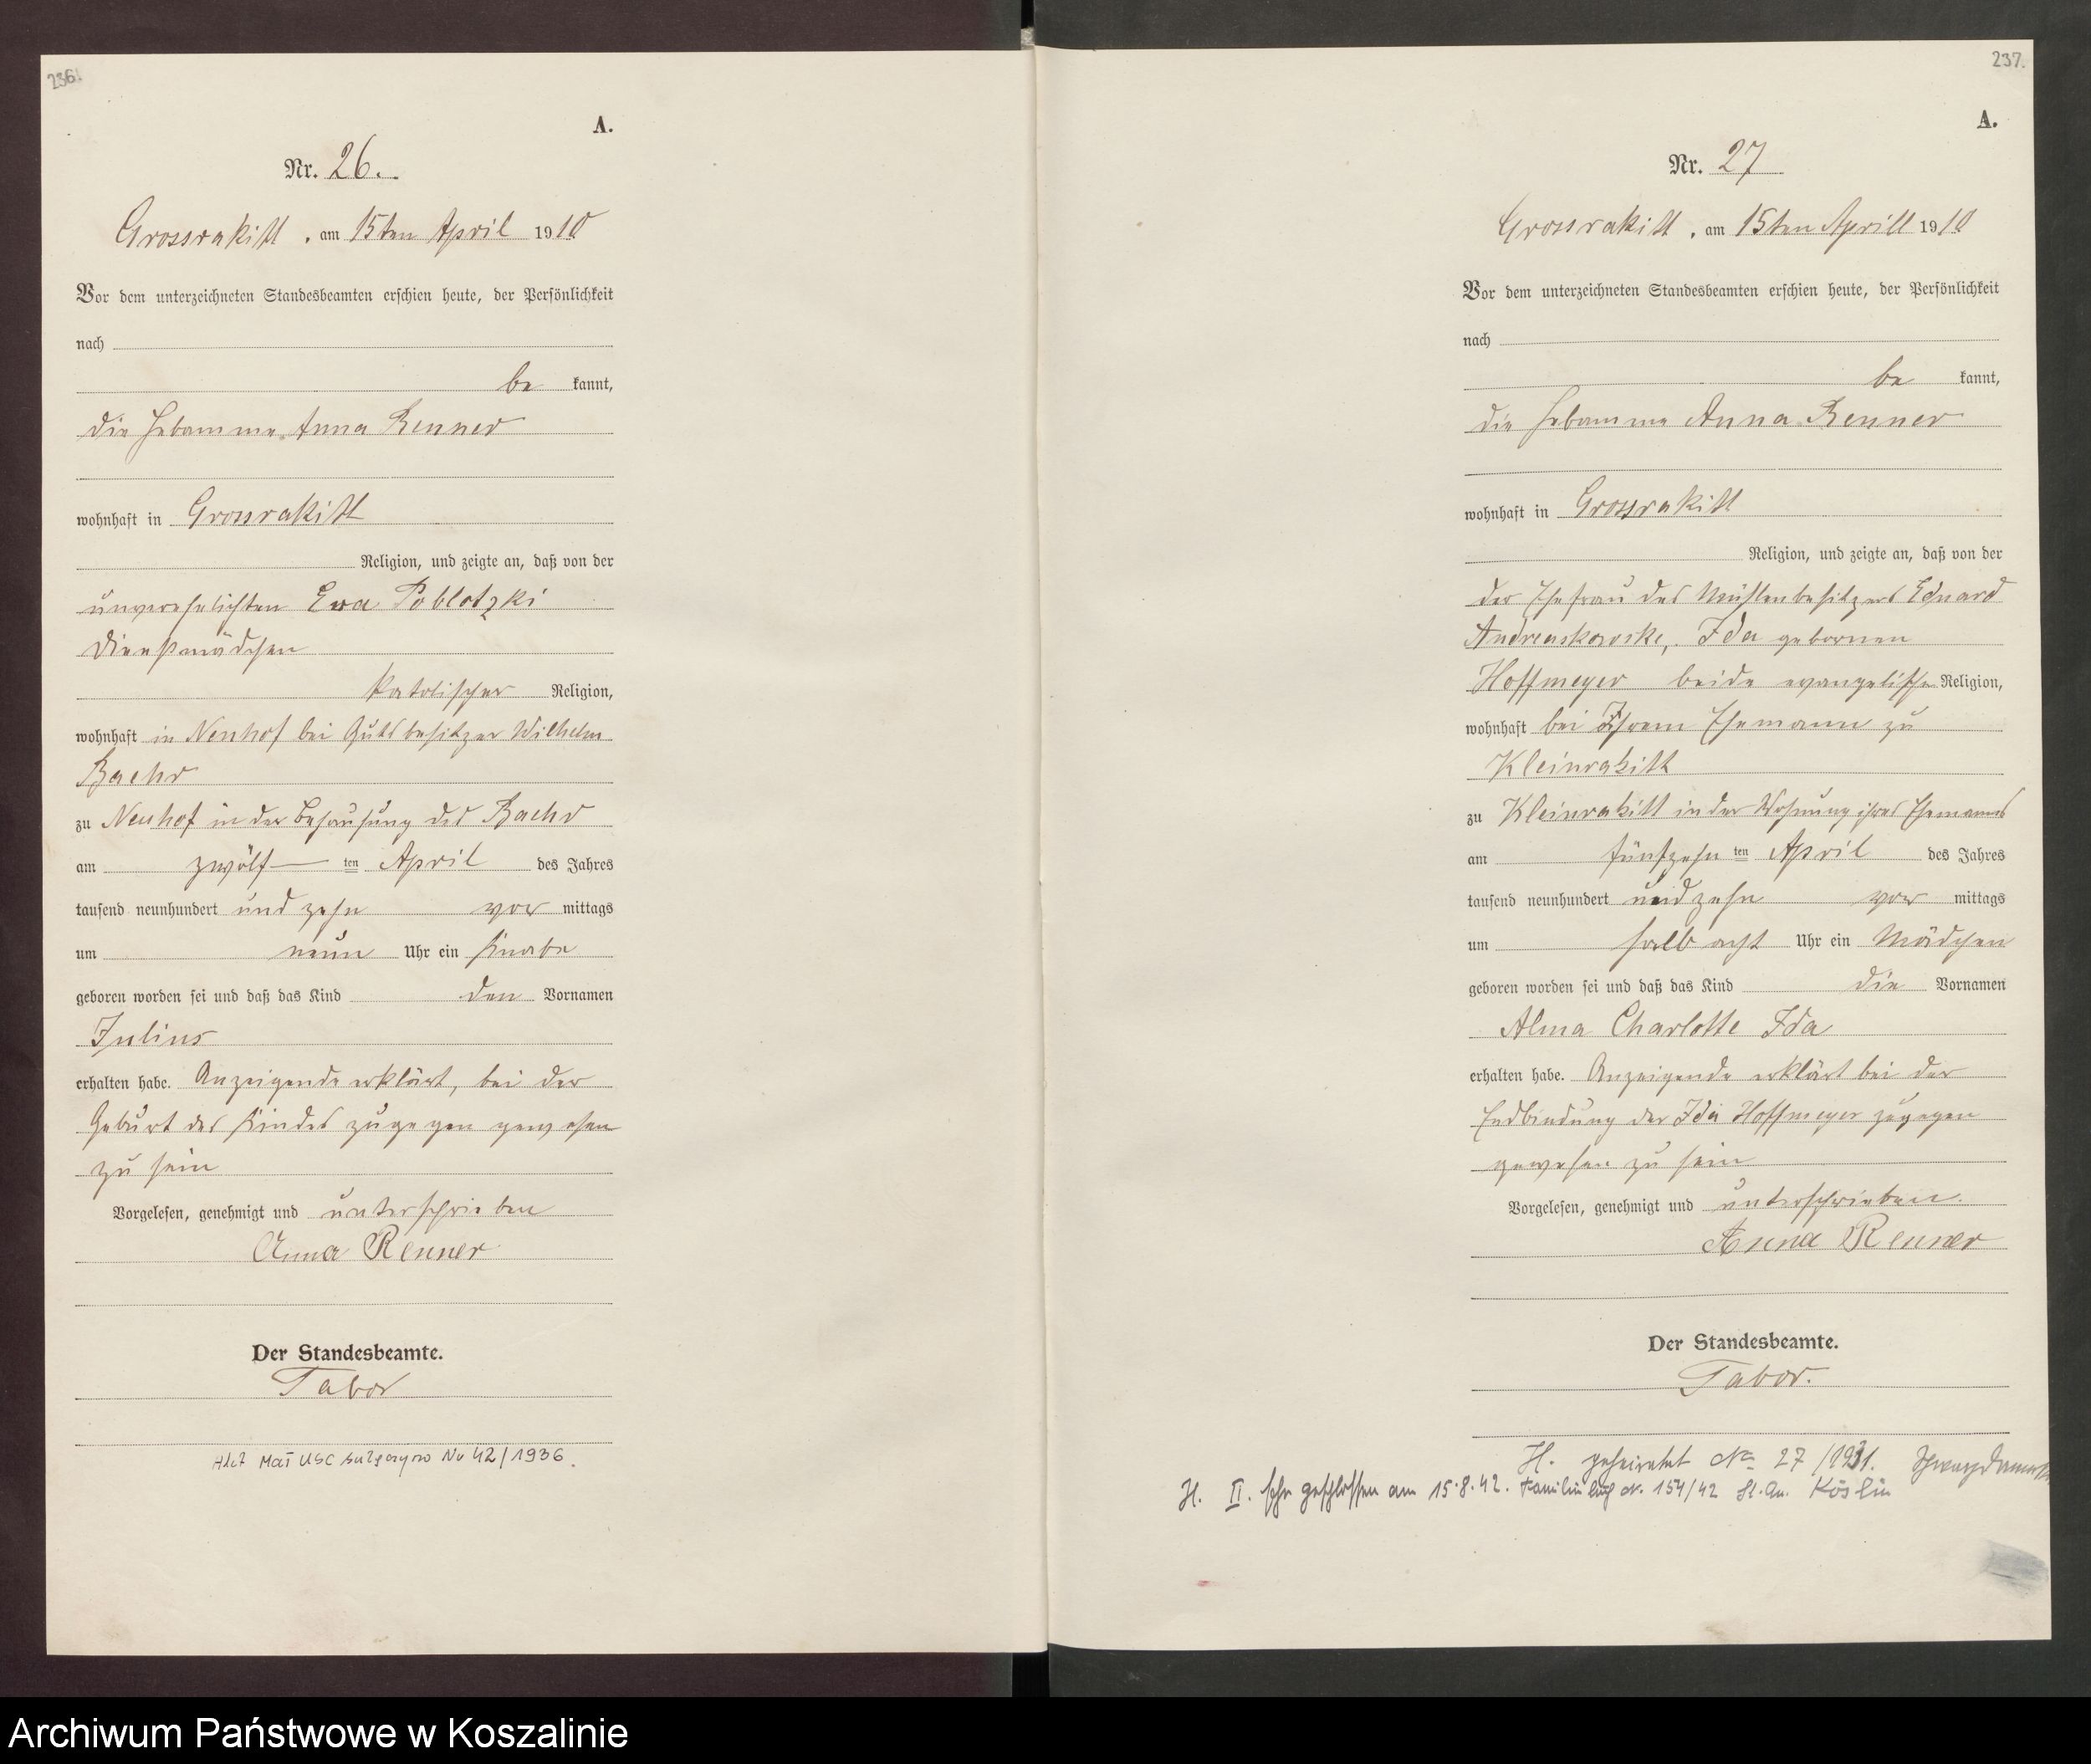 236.
A.
Nr. 26.
Grossrakitt, am 15ten April 1910
Vor dem unterzeichneten Standesbeamten erschien heute, der Persönlichkeit
nach
be kannt,
die Hebamme Anna Renner
wohnhaft in Grossrakitt
Religion, und zeigte an, daß von der
unverehelichten Eva Poblotzki
Dienstmädchen
katolischer Religion,
wohnhaft in Neuhof bei Gutsbesitzer Wilhelm
Baehr
zu Neuhof in der Behausung des Baehr
am zwölf ten April des Jahres
tausend neunhundert und zehn vor mittags
um neun Uhr ein Knabe
geboren worden sei und daß das Kind den Vornamen
Julius
erhalten habe. Anzeigende erklärt, bei der
Geburt des Kindes zugegen gewesen
zu sein
Vorgelesen, genehmigt und unterschrieben
Anna Renner
Der Standesbeamte.
Tabor
Akt Mał USC No 42/1936.
237.
A.
Nr. 27
Grossrakitt, am 15ten Aprill 1910
Vor dem unterzeichneten Standesbeamten erschien heute, der Persönlichkeit
nach
be kannt,
die Hebamme Anna Renner
wohnhaft in Grossrakitt
Religion, und zeigte an, daß von der
der Ehefrau des Mühlenbesitzers Eduard
Andreaskowske, Ida gebornen
Hoffmeyer beide evangelische Religion,
wohnhaft bei Ihrem Ehemann zu
Kleinrakitt
zu Kleinrakitt in der Wohnung ihres Ehemanns
am fünfzehn ten April des Jahres
tausend neunhundert und zehn vor mittags
um halb acht Uhr ein Mädchen
geboren worden sei und daß das Kind die Vornamen
Alma Charlotte Ida
erhalten habe. Anzeigende erklärt bei der
Endbindung der Ida Hoffmeyer zugegen
gewesen zu sein
Vorgelesen, genehmigt und unterschrieben.
Anna Renner
Der Standesbeamte.
Tabor.
H. geheiratet No 27/1931.
H. II. Ehe geschlossen am 15.8.42. Familienbuch Nr. 154/42 St.A. Köslin
Archiwum Państwowe w Koszalinie